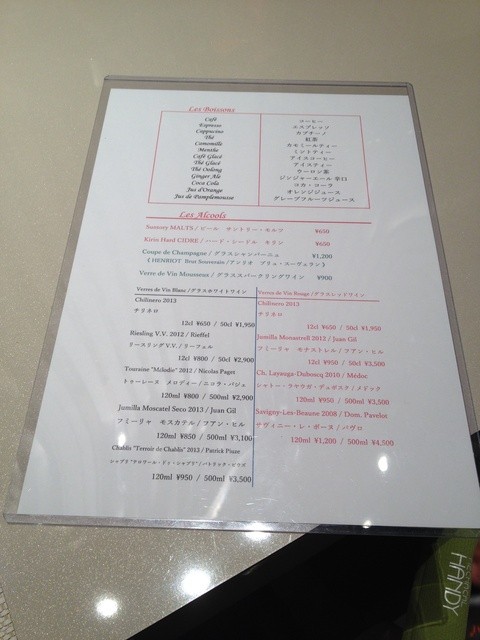 Les Boissons
Café
Espresso
Cappucino
Thé
Camomille
Menthe
Café Glacé
Thé Glacé
Thé Oolong
Ginger Ale
Coca Cola
Jus d'Orange
Jus de Pamplemousse
コーヒー
エスプレッソ
カプチーノ
紅茶
カモミールティー
ミントティー
アイスコーヒー
アイスティー
ウーロン茶
ジンジャーエール 辛口
コカ・コーラ
オレンジジュース
グレープフルーツジュース
Les Alcools
Suntory MALTS / ビール サントリー・モルツ ¥650
Kirin Hard CIDRE / ハード・シードル キリン ¥650
Coupe de Champagne / グラスシャンパーニュ ¥1,200
( HENRIOT Brut Souverain / アンリオ ブリュ・スーヴェラン )
Verre de Vin Mousseux / グラススパークリングワイン ¥900
Verres de Vin Blanc / グラスホワイトワイン
Chilinero 2013
チリネロ
12cl ¥650 / 50cl ¥1,950
Riesling V.V. 2012 / Rieffel
リースリング V.V. / リーフェル
12cl ¥800 / 50cl ¥2,900
Touraine "Mélodie" 2012 / Nicolas Paget
トゥーレーヌ メロディー / ニコラ・パジェ
120ml ¥800 / 500ml ¥2,900
Jumilla Moscatel Seco 2013 / Juan Gil
フミーリャ モスカテル / フアン・ヒル
120ml ¥850 / 500ml ¥3,100
Chablis "Terroir de Chablis" 2013 / Patrick Piuze
シャブリ "テロワール・ドゥ・シャブリ" / パトリック・ピウズ
120ml ¥950 / 500ml ¥3,500
Verres de Vin Rouge / グラスレッドワイン
Chilinero 2013
チリネロ
12cl ¥650 / 50cl ¥1,950
Jumilla Monastrell 2013 / Juan Gil
フミーリャ モナストレル / フアン・ヒル
12cl ¥950 / 50cl ¥3,500
Ch. Layauga-Duboscq 2010 / Médoc
シャトー・ラヤウガ・デュボスク / メドック
120ml ¥950 / 500ml ¥3,500
Savigny-Les-Beaune 2008 / Dom. Pavelot
サヴィニー・レ・ボーヌ / パヴロ
120ml ¥1,200 / 500ml ¥4,500
HANDY